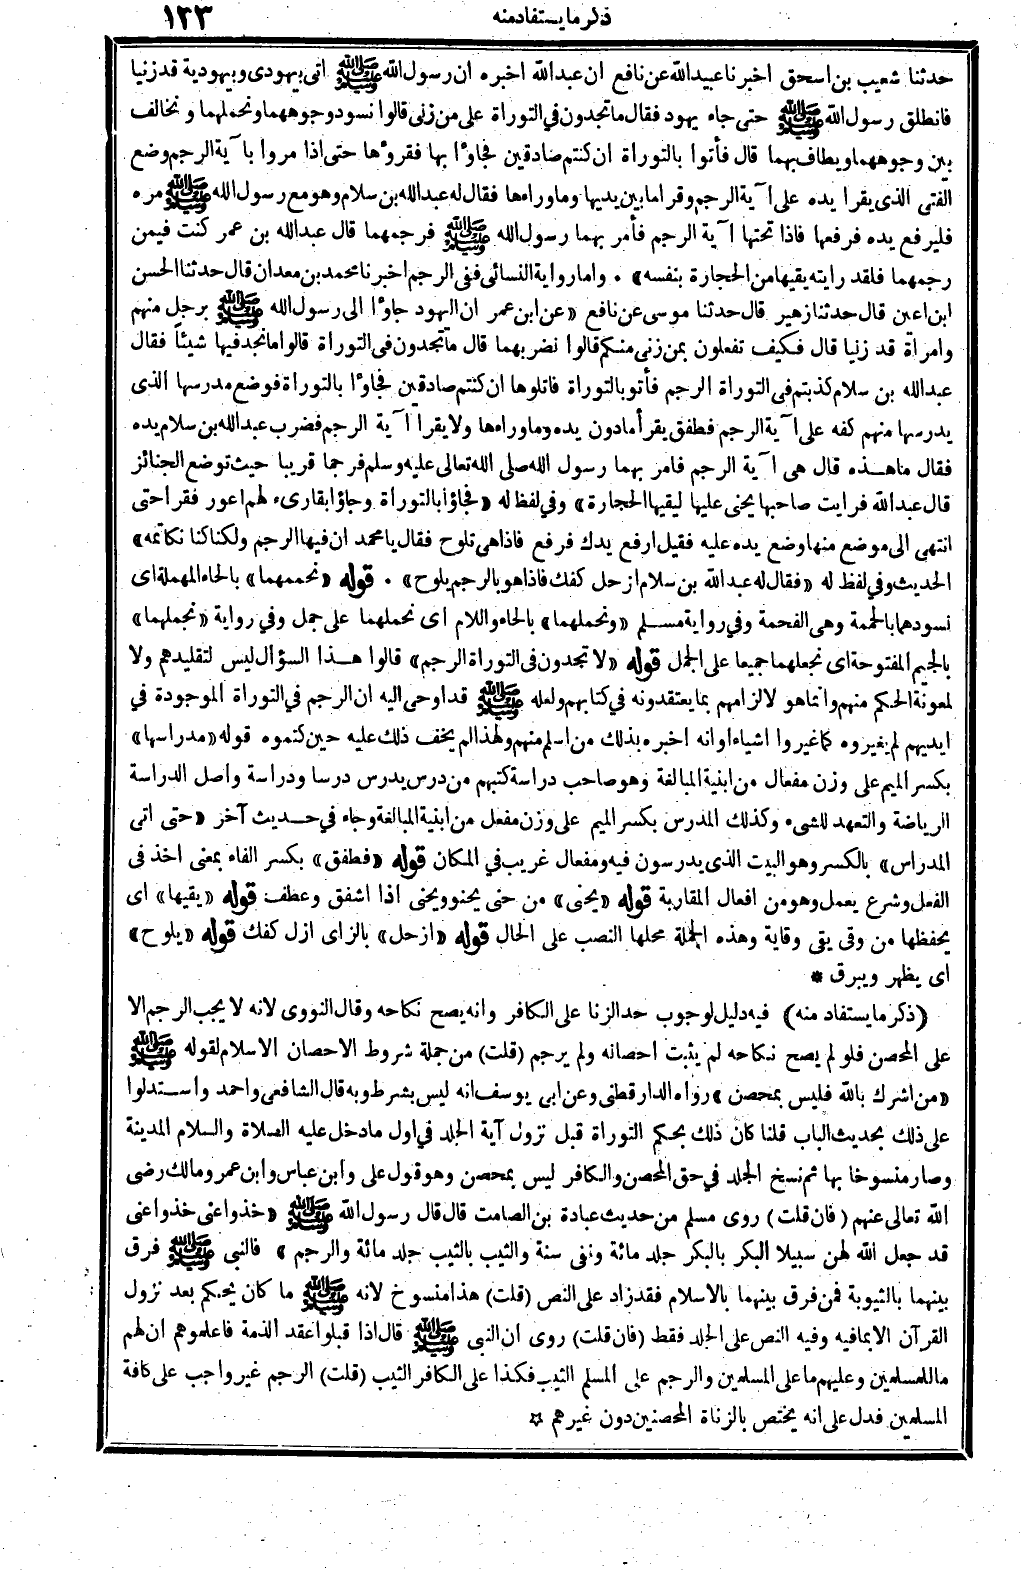 ذكر ما يستفاد منه
١٢٣
حدثنا شعيب بن اسحق اخبرنا عبيد الله عن نافع ان عبد الله اخبره ان رسول الله ﷺ اتى بيهودى ويهودية قد زنيا
فانطلق رسول الله ﷺ حتى جاء يهود فقال ما تجدون في التوراة على من زنى قالوا نسود وجوههما ونحملهما ونخالف
بين وجوههما ويطاف بهما قال فأتوا بالتوراة ان كنتم صادقين فجاؤا بها فقرؤها حتى اذا مروا بآية الرجم وضع
الفتى الذى يقرا يده على آية الرجم وقرا ما بين يديها وما وراءها فقال له عبد الله بن سلام وهو مع رسول الله ﷺ مره
فليرفع يده فرفعها فاذا تحتها آية الرجم فأمر بهما رسول الله ﷺ فرجمهما قال عبد الله بن عمر كنت فيمن
رجمهما فلقد رايته يقيها من الحجارة بنفسه» ٠ واما رواية النسائى ففى الرجم اخبرنا محمد بن معدان قال حدثنا الحسن
ابن اعين قال حدثنا زهير قال حدثنا موسى عن نافع «عن ابن عمر ان اليهود جاؤا الى رسول الله ﷺ برجل منهم
وامراة قد زنيا قال فكيف تفعلون بمن زنى منكم قالوا نضربهما قال ما تجدون فى التوراة قالوا ما نجد فيها شيئاً فقال
عبد الله بن سلام كذبتم فى التوراة الرجم فأتو بالتوراة فاتلوها ان كنتم صادقين فجاؤا بالتوراة فوضع مدرسها الذى
يدرسها منهم كفه على آية الرجم فطفق يقرأ مادون يده وما وراءها ولا يقرا آية الرجم فضرب عبد الله بن سلام يده
فقال ما هذه قال هى آية الرجم فامر بهما رسول الله صلى الله تعالى عليه وسلم فرجما قريبا حيث توضع الجنائز
قال عبد الله فرايت صاحبها يحنى عليها ليقيها الحجارة» وفي لفظ له «فجاؤا بالتوراة وجاؤا بقارىء لهم اعور فقرا حتى
انتهى الى موضع منها وضع يده عليه فقيل ارفع يدك فرفع فاذا هى تلوح فقال يا محمد ان فيها الرجم ولكنا كنا نكاتمه»
الحديث وفي لفظ له «فقال له عبد الله بن سلام ازحل كفك فاذا هو بالرجم يلوح» ٠ قوله «نحممهما» بالحاء المهملة اى
نسودهما بالحممة وهى الفحمة وفي رواية مسلم «ونحملهما» بالحاء واللام اى نحملهما على جمل وفي رواية «نجملهما»
بالجيم المفتوحة اى نجعلهما جميعا على الجمل قوله «لا تجدون فى التوراة الرجم» قالوا هذا السؤال ليس لتقليدهم ولا
لمعونة الحكم منهم وانما هو لالزامهم بما يعتقدونه في كتابهم ولعله ﷺ قد اوحى اليه ان الرجم في التوراة الموجودة في
ايديهم لم يغيروه كما غيروا اشياء او انه اخبره بذلك من اسلم منهم ولهذا لم يخف ذلك عليه حين كتموه قوله «مدراسها»
بكسر الميم على وزن مفعال من ابنية المبالغة وهو صاحب دراسة كتبهم من درس يدرس درسا ودراسة واصل الدراسة
الرياضة والتعهد للشىء وكذلك المدرس بكسر الميم على وزن مفعل من ابنية المبالغة وجاء في حديث آخر «حتى اتى
المدراس» بالكسر وهو البيت الذى يدرسون فيه ومفعال غريب في المكان قوله «فطفق» بكسر الفاء بمعنى اخذ فى
الفعل وشرع يعمل وهو من افعال المقاربة قوله «يحنى» من حنى يحنو ويحنى اذا اشفق وعطف قوله «يقيها» اى
يحفظها من وقى يقى وقاية وهذه الجملة محلها النصب على الحال قوله «ازحل» بالزاى ازل كفك قوله «يلوح»
اى يظهر ويبرق *
(ذكر ما يستفاد منه) فيه دليل لوجوب حد الزنا على الكافر وانه يصح نكاحه وقال النووى لانه لا يجب الرجم الا
على المحصن فلو لم يصح نكاحه لم يثبت احصانه ولم يرجم (قلت) من جملة شروط الاحصان الاسلام لقوله ﷺ
«من اشرك بالله فليس بمحصن» رواه الدارقطنى وعن ابى يوسف انه ليس بشرط وبه قال الشافعى واحمد واستدلوا
على ذلك بحديث الباب قلنا كان ذلك بحكم التوراة قبل نزول آية الجلد في اول ما دخل عليه الصلاة والسلام المدينة
وصار منسوخا بها ثم نسخ الجلد في حق المحصن والكافر ليس بمحصن وهو قول على وابن عباس وابن عمر ومالك رضى
الله تعالى عنهم (فان قلت) روى مسلم من حديث عبادة بن الصامت قال قال رسول الله ﷺ «خذوا عنى خذوا عنى
قد جعل الله لهن سبيلا البكر بالبكر جلد مائة ونفى سنة والثيب بالثيب جلد مائة والرجم» فالنبى ﷺ فرق
بينهما بالثيوبة فمن فرق بينهما بالاسلام فقد زاد على النص (قلت) هذا منسوخ لانه ﷺ ما كان يحكم بعد نزول
القرآن الا بما فيه وفيه النص على الجلد فقط (فان قلت) روى ان النبى ﷺ قال اذا قبلوا عقد الذمة فاعلموهم ان لهم
ما للمسلمين وعليهم ما على المسلمين والرجم على المسلم الثيب فكذا على الكافر الثيب (قلت) الرجم غير واجب على كافة
المسلمين فدل على انه يختص بالزناة المحصنين دون غيرهم ☆